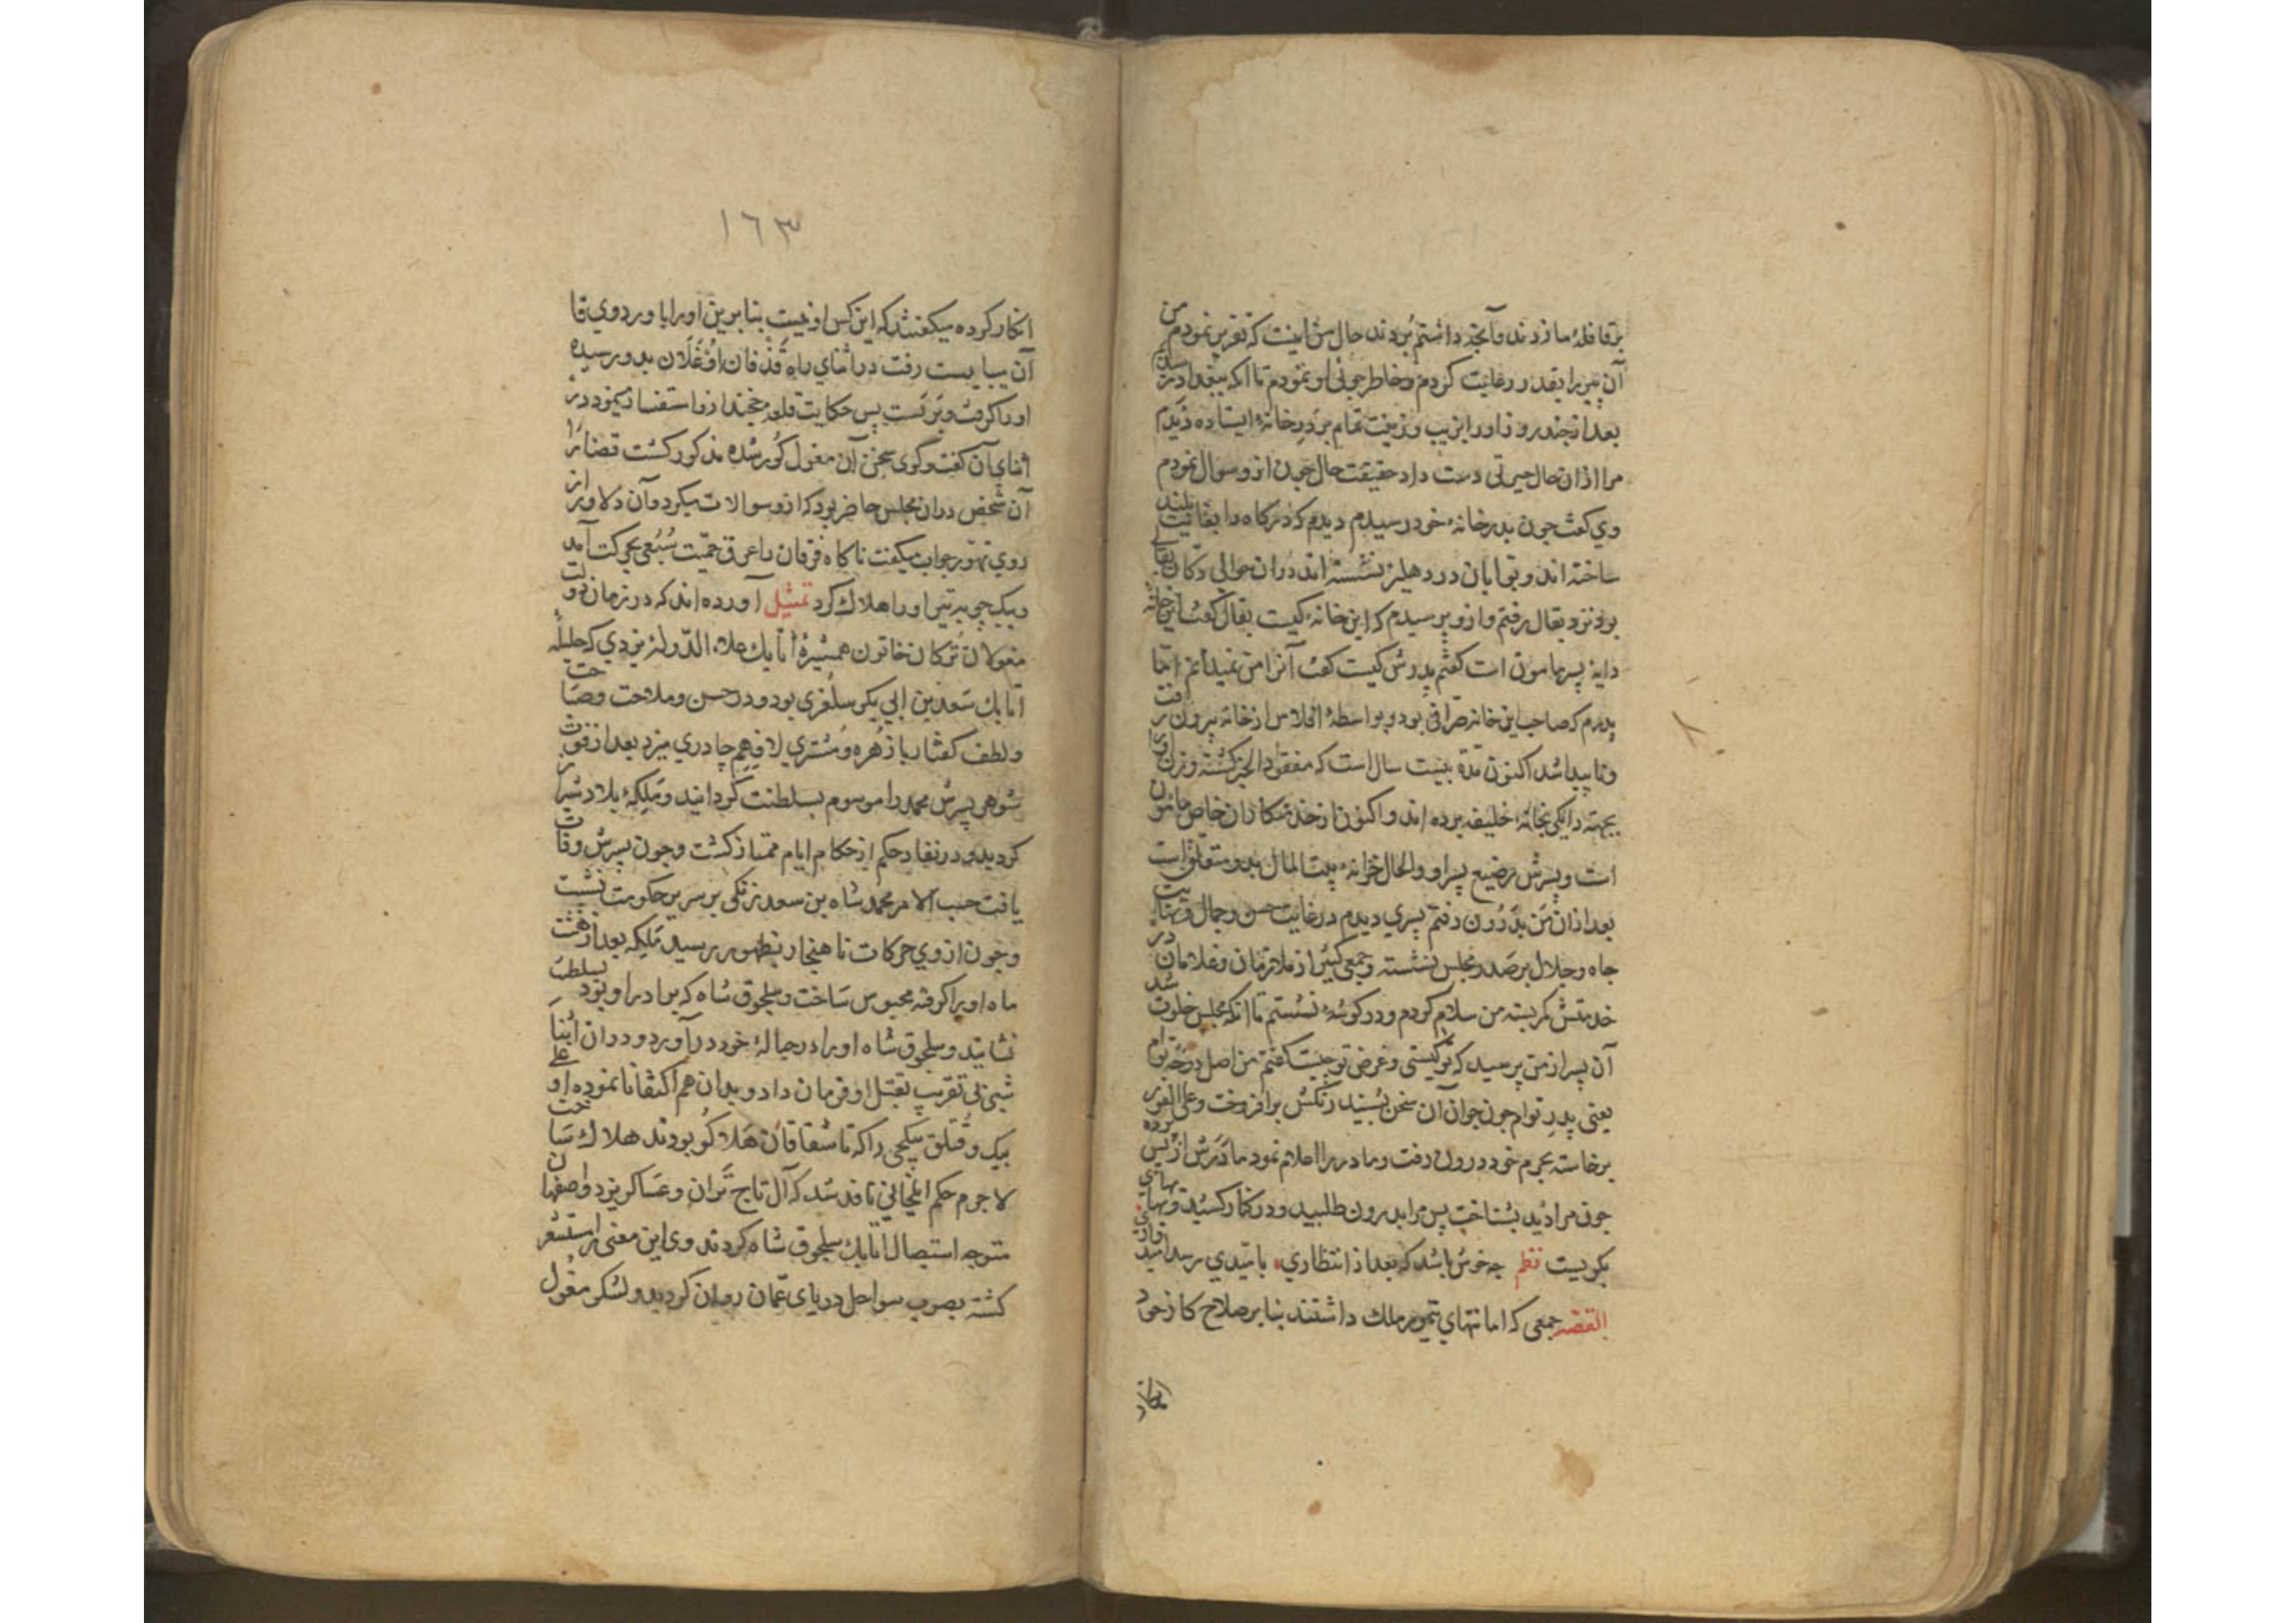 بر قافلهٔ ما زدند و آنچه داشتم بردند حال من اینست که تقریر نمودم من
آن پیر را بقدر رعایت کردم و خاطر جوئی او نمودم تا آنکه ببغداد رسیدیم
بعد از چند روز او را بزیب و زینت تمام بر در خانهٔ ایستاده دیدم
مرا از آن حال حیرتی دست داد حقیقت حال چون ازو سوال نمودم
وی گفت چون بدر خانهٔ خود رسیدم دیدم که درکاه را بغایت بلند
ساخته اند و بوابان در دهلیز نشسته اند در آن حوالی دکان بقالی
بود نزد بقال رفتم و ازو پرسیدم که این خانهٔ کیست بقال گفت این خانه
دایهٔ پسر مامون است گفتم پدرش کیست گفت آنرا من نمیدانم اما
پدرم که صاحب این خانه صرافی بود و بواسطهٔ افلاس از خانه بیرون رفت
و ناپیدا شد اکنون مدة بیست سال است که مفقود الخبر گشته و زن او را
بجهته دایگی بخانهٔ خلیفه برده اند و اکنون از خدمتکاران خاص مامون
است و پسرش رضیع پسر او و الحال خزانهٔ بیت المال بدو متعلق است
بعد از آن من بدرون رفتم پسری دیدم در غایت حسن و جمال و نهایت
جاه و جلال بر صدر مجلس نشسته و جمعی کثیر از ملازمان و غلامان در
خدمتش کمر بسته من سلام کردم و در کوشهٔ نشستم تا آنکه مجلس خلوت شد
آن پسر از من پرسید که تو کیستی و غرض تو چیست گفتم من اصل درخت توام
یعنی پدر توام چون جوان آن سخن بشنید رنکش بر افروخت و علی الفور
برخاسته بحرم خود درون رفت و مادر را اعلام نمود مادرش از پس پرده
چون مرا دید بشناخت پس مرا بدرون طلبید و در کنار کشید و بهای بهای
بکریست نظم چه خوش باشد که بعد از انتظاری بامیدی رسد امیدواری
القصه جمعی که امانتهای تیمور ملک داشتند بنا بر صلاح کار خود
انکار
١٦٣
انکار کرده میکفتند که این کس او نیست بنا برین او را باوردوی قا
آن میبایست رفت در اثنای راه قدقان اوغلان بدو رسیده
او را گرفت و بر بست پس حکایت قلعهٔ خجند ازو استفسار مینمود در
اثنای آن گفت و گوی سخن آن مغول کور شده مذکور گشت قضا را
آن شخص در آن مجلس حاضر بود که ازو سوالات میکرد و آن دلاور از
روی تهور جواب میکفت ناکاه قدقان را عرق حمیت سبعی بحرکت آمد
و بیک چوبه تیر او را هلاک کرد تمثیل آورده اند که در زمان دولت
مغولان ترکان خاتون همشیرهٔ اتابک علاء الدولهٔ یزدی که حلیله
اتابک سعد بن ابی بکر سلغری بود و در حسن و ملاحت و فصاحت
و لطف گفتار با زهره و مشتری لاف هم چادری میزد بعد از فوت
شوهر پسرش محمد را موسوم بسلطنت گردانید و ملکهٔ بلاد شیراز
گردید و در نفاذ حکم از حکام ایام ممتاز گشت و چون پسرش وفات
یافت حسب الامر محمد شاه بن سعد زنکی بر سریر حکومت نشست
و چون از وی حرکات ناهنجار بظهور رسید ملکه بعد از هفت
ماه او را گرفته محبوس ساخت و سلجوق شاه که برادر او بود بسلطنت
نشانید و سلجوق شاه او را در حبالهٔ خود در آورد و در آن اثنا
شبی بی تقریب بقتل او فرمان داد و بدان هم اکتفا نا نموده اوغلی
بیک و قتلق بیتکچی را که باسقاقان هلاکو بودند هلاک ساخت
لاجرم حکم ایلخانی نافذ شد که آلتاج تمر آن و عساکر یزد و اصفهان
متوجه استیصال اتابک سلجوق شاه کردند وی این معنی را مستشعر
کشته بصوب سواحل دریای عمان روان کردید و لشکر مغول